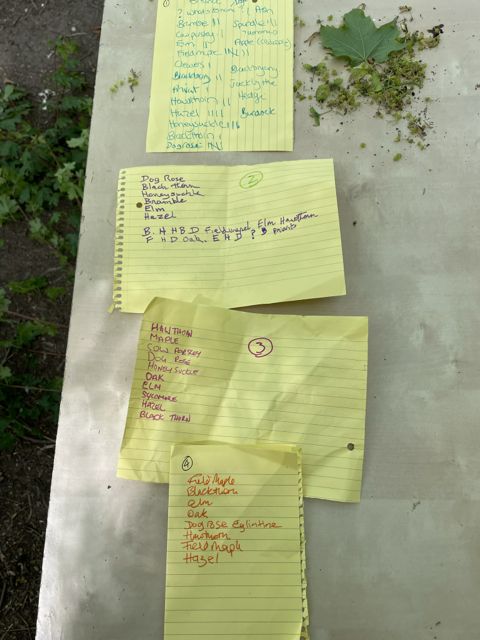 Ash
Bramble 11 Spindle 11
Cow parsley 1
Elm
Field maple
Clovers 1
Blackberry
Privet 1
Hawthorn 11 Hedge
Hazel 1111 Burdock
Honeysuckle 111
Blackthorn 1
Dog rose
2
Dog Rose
Black thorn
Honeysuckle
Bramble
Elm
Hazel
B. H H B. D Field maple Elm Hawthorn
F H D Oak. E H D ? B Privit
3
HAWTHORN
MAPLE
COW PARSLEY
DOG ROSE
HONEY SUCKLE
OAK
ELM
SYCAMORE
HAZEL
BLACK THORN
4
Field Maple
Blackthorn
elm
Oak
Dog rose Eglintine
Hawthorn
Field Maple
Hazel